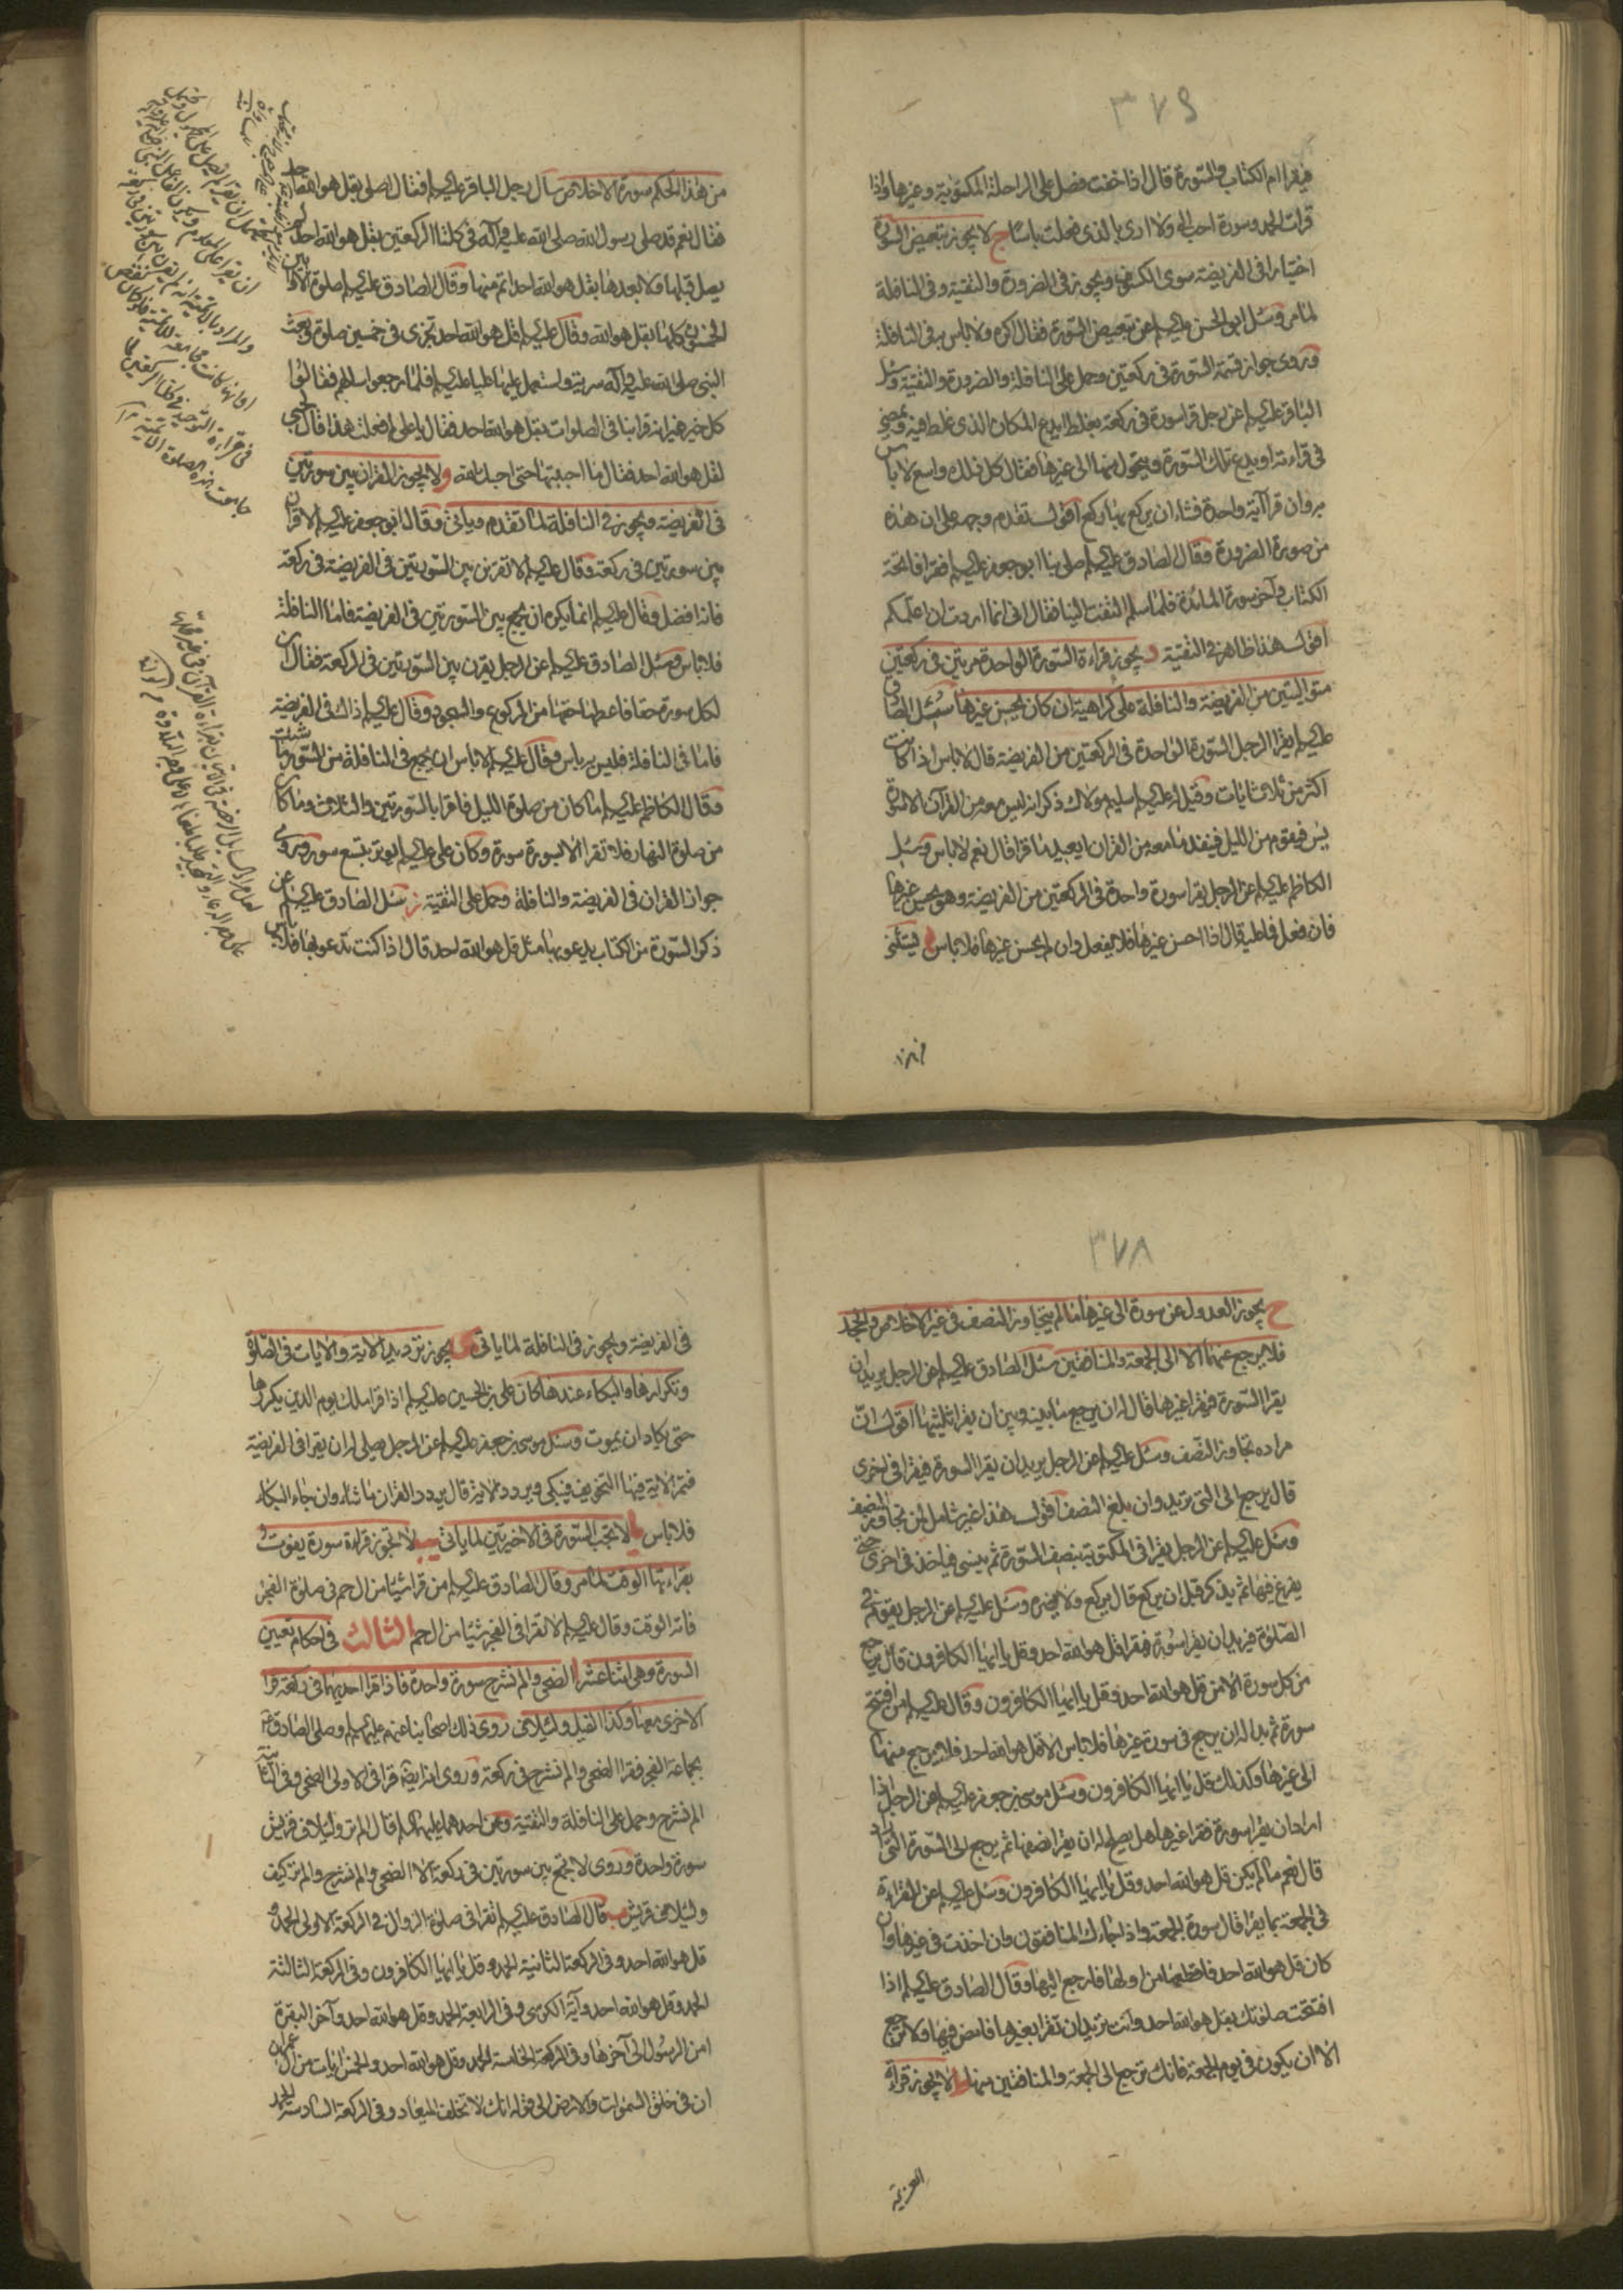 ٣٧٩
فيقرا ام الكتاب والسورة قال اذا خفت فصل على الراحلة المكتوبة وغيرها واذا
قرات الحمد وسورة احب الي ولا ارى بالذى فعلت باسا ج لا يجوز تبعيض السورة
اختيارا فى الفريضة سوى الكسوف ويجوز فى الضرورة والتقية وفى النافلة
لما مر وسئل ابو الحسن عليه السلام عن تبعيض السورة فقال اكره ولا باس به فى النافلة
وروى جواز قسمة السورة فى ركعتين وحمل على النافلة والضرورة والتقية وسئل
الباقر عليه السلام عن رجل قرا سورة فى ركعة فغلط ايدع المكان الذى غلط فيه ويمضى
فى قراءته او يدع تلك السورة ويتحول منها الى غيرها فقال كل ذلك واسع لا باس
به وان قرا آية واحدة فشاء ان يركع بها ركع اقول تقدم وجهه على ان هذه
من صورة الضرورة وقال الصادق عليه السلام صلى بنا ابو جعفر عليه السلام فقرا فاتحة
الكتاب وآخر سورة المائدة فلما سلم التفت الينا فقال انى انما اردت ان اعلمكم
اقول هذا ظاهر فى التقية د يجوز قراءة السورة الواحدة مرتين فى ركعتين
متواليتين من الفريضة والنافلة على كراهية ان كان يحسن غيرها سئل الصادق
عليه السلام يقرا الرجل السورة الواحدة فى الركعتين من الفريضة قال لا باس اذا كانت
اكثر من ثلاث ايات وقيل له عليه السلام سليم مولاك ذكر انه ليس معه من القرآن الا سورة
يس فيقوم من الليل فينفد ما معه من القران ايعيد ما قرا قال نعم لا باس وسئل
الكاظم عليه السلام عن الرجل يقرا سورة واحدة فى الركعتين من الفريضة وهو يحسن غيرها
فان فعل فما عليه قال اذا احسن غيرها فلا يفعل وان لم يحسن غيرها فلا باس ه يستثنى
من هذا الحكم سورة الاخلاص سأل رجل الباقر عليه السلام فقال اصلى بقل هو الله احد
فقال نعم قد صلى رسول الله صلى الله عليه وآله فى كلتا الركعتين بقل هو الله احد لم
يصل قبلها ولا بعدها بقل هو الله احد اتم منها وقال الصادق عليه السلام صلوة الاوابين
الخمسون كلها بقل هو الله وقال عليه السلام قل هو الله احد تجزى فى خمسين صلوة وبعث
النبى صلى الله عليه وآله سرية واستعمل عليها عليا عليه السلام فلما رجعوا سالهم فقالوا
كل خير غير انه قرا بنا فى الصلوات بقل هو الله احد فقال يا على لم فعلت هذا قال لحبى
لقل هو الله احد فقال ما احببتها حتى احبك الله و لا يجوز القران بين سورتين
فى الفريضة ويجوز فى النافلة لما تقدم وياتى وقال ابو جعفر عليه السلام لا قران
بين سورتين فى ركعة وقال عليه السلام لا تقرنن بين السورتين فى الفريضة فى ركعة
فانه افضل وقال عليه السلام انما يكره ان يجمع بين السورتين فى الفريضة فاما النافلة
فلا باس وسئل الصادق عليه السلام عن الرجل يقرن بين السورتين فى الركعة فقال ان
لكل سورة حقا فاعطها حقها من الركوع والسجود وقال عليه السلام ذاك فى الفريضة
فاما فى النافلة فليس به باس وقال عليه السلام لا باس ان يجمع فى النافلة من السور ما شئت
وقال الكاظم عليه السلام ما كان من صلوة الليل فاقرا بالسورتين والثلاث وما كان
من صلوة النهار فلا تقرا الا بسورة سورة وكان على عليه السلام يوتر بتسع سور وروى
جواز القران فى الفريضة والنافلة وحمل على التقية ز سئل الصادق عليه السلام عن
ذكر السورة من الكتاب يدعو بها مثل قل هو الله احد قال اذا كنت تدعو بها فلا باس
٣٧٨
ح يجوز العدول عن سورة الى غيرها ما لم يتجاوز النصف فى غير الاخلاص والجحد
فلا يرجع عنهما الا الى الجمعة والمنافقين سئل الصادق عليه السلام عن الرجل يريد ان
يقرا السورة فيقرا غيرها قال له ان يرجع ما بينه وبين ان يقرا ثلثيها اقول ان
مراده تجاوز النصف وسئل عليه السلام عن الرجل يريد ان يقرا السورة فيقرا فى اخرى
قال يرجع الى التى يريد وان بلغ النصف اقول هذا غير شامل لمن تجاوز النصف
وسئل عليه السلام عن الرجل يقرا فى المكتوبة بنصف السورة ثم ينسى فياخذ فى اخرى حتى
يفرغ فيها ثم يذكر قبل ان يركع قال يركع ولا يضره وسئل عليه السلام عن الرجل يقوم فى
الصلوة فيريد ان يقرا سورة فيقرا قل هو الله احد وقل يا ايها الكافرون قال يرجع
من كل سورة الا من قل هو الله احد وقل يا ايها الكافرون وقال عليه السلام من افتتح
سورة ثم بدا له ان يرجع فى سورة غيرها فلا باس الا قل هو الله احد فلا يرجع منها
الى غيرها وكذلك قل يا ايها الكافرون وسئل موسى بن جعفر عليه السلام عن الرجل اذا
اراد ان يقرا سورة فقرا غيرها هل يصلح له ان يقرا نصفها ثم يرجع الى السورة التى اراد
قال نعم ما لم يكن قل هو الله احد وقل يا ايها الكافرون وسئل عليه السلام عن القراءة
فى الجمعة بما يقرا قال سورة الجمعة واذا جاءك المنافقون وان اخذت فى غيرها وان
كان قل هو الله احد فاقطعها من اولها فارجع اليها وقال الصادق عليه السلام اذا
افتتحت صلوتك بقل هو الله احد وانت تريد ان تقرا بغيرها فامض فيها ولا ترجع
الا ان يكون فى يوم الجمعة فانك ترجع الى الجمعة والمنافقين منها ط لا يجوز قراءة
العزيمة
فى الفريضة ويجوز فى النافلة لما ياتى ى يجوز ترديد الاية والايات فى الصلوة
وتكرارها والبكاء عندها كان على بن الحسين عليه السلام اذا قرا ملك يوم الدين يكررها
حتى يكاد ان يموت وسئل موسى بن جعفر عليه السلام عن الرجل يصلى له ان يقرا فى الفريضة
فتمر الاية فيها التخويف فيبكى ويردد الاية قال يردد القران ما شاء وان جاءه البكاء
فلا باس يا لا تجب السورة فى الاخيرتين لما ياتى يب لا تجوز قراءة سورة يفوت
بقراءتها الوقت لما مر وقال الصادق عليه السلام من قرا شيئا من ال حم فى صلوة الفجر
فاته الوقت وقال عليه السلام لا تقرا فى الفجر شيئا من ال حم الثالث فى احكام تعيين
السورة وهى اثنا عشر ا الضحى والم نشرح سورة واحدة فاذا قرا احديهما فى ركعة قرا
الاخرى معها وكذا الفيل ولئيلاف روى ذلك اصحابنا عنهم عليهم السلام وصلى الصادق عليه السلام
بجماعة الفجر فقرا الضحى والم نشرح فى ركعة وروى انه ايضا قرا فى الاولى الضحى وفى الثانية
الم نشرح وحمل على النافلة والتقية وعن احدهما عليهما السلام قال الم تر ولئيلاف قريش
سورة واحدة وروى لا تجمع بين سورتين فى ركعة الا الضحى والم نشرح والم تر كيف
ولئيلاف قريش ب قال الصادق عليه السلام تقرا فى صلوة الزوال فى الركعة الاولى الحمد و
قل هو الله احد وفى الركعة الثانية الحمد وقل يا ايها الكافرون وفى الركعة الثالثة
الحمد وقل هو الله احد وآية الكرسى وفى الرابعة الحمد وقل هو الله احد وآخر البقرة
امن الرسول الى آخرها وفى الركعة الخامسة الحمد وقل هو الله احد والخمس ايات من ال عمران
ان فى خلق السموات والارض الى قوله انك لا تخلف الميعاد وفى الركعة السادسة الحمد